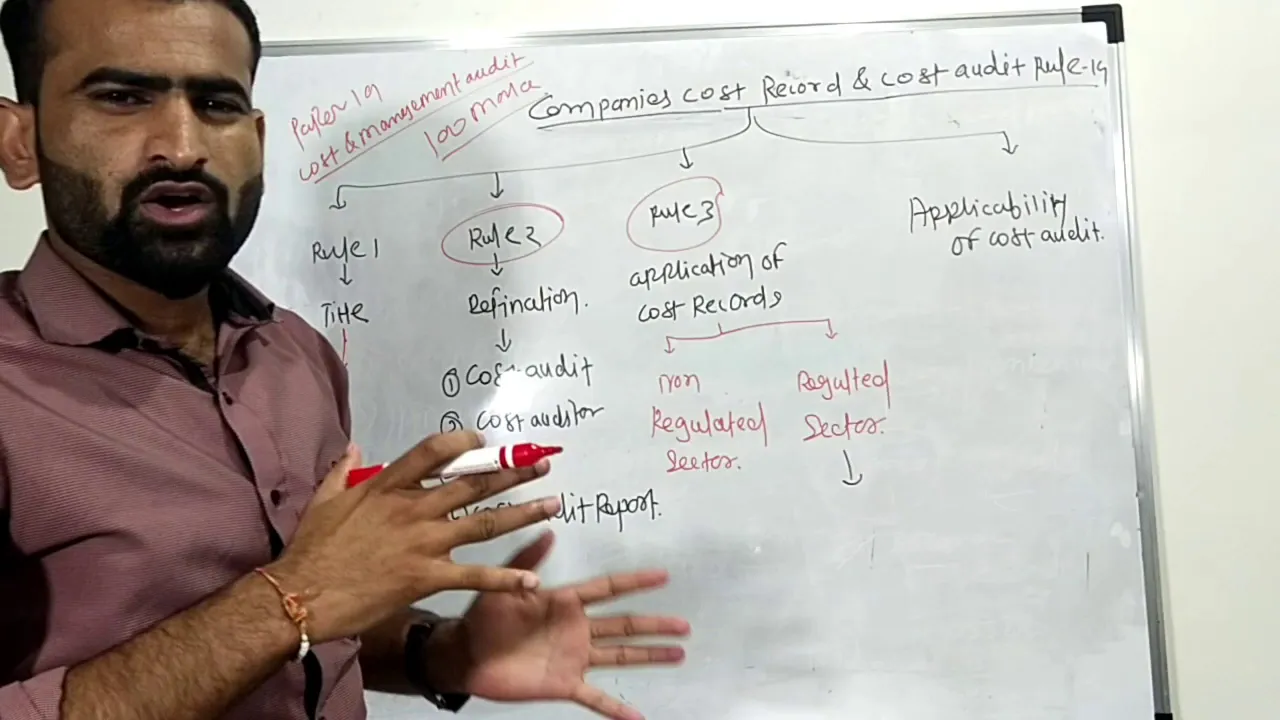 Paper 19
cost & management audit
100 marks
Companies cost Record & cost audit Rule-14
Rule 1
Title
Rule 2
Defination.
① Cost audit
② Cost auditor
audit Report.
Rule 3
application of
cost Records
Non
Regulated
Sector.
Regulted
Sector.
Applicability
of cost audit.